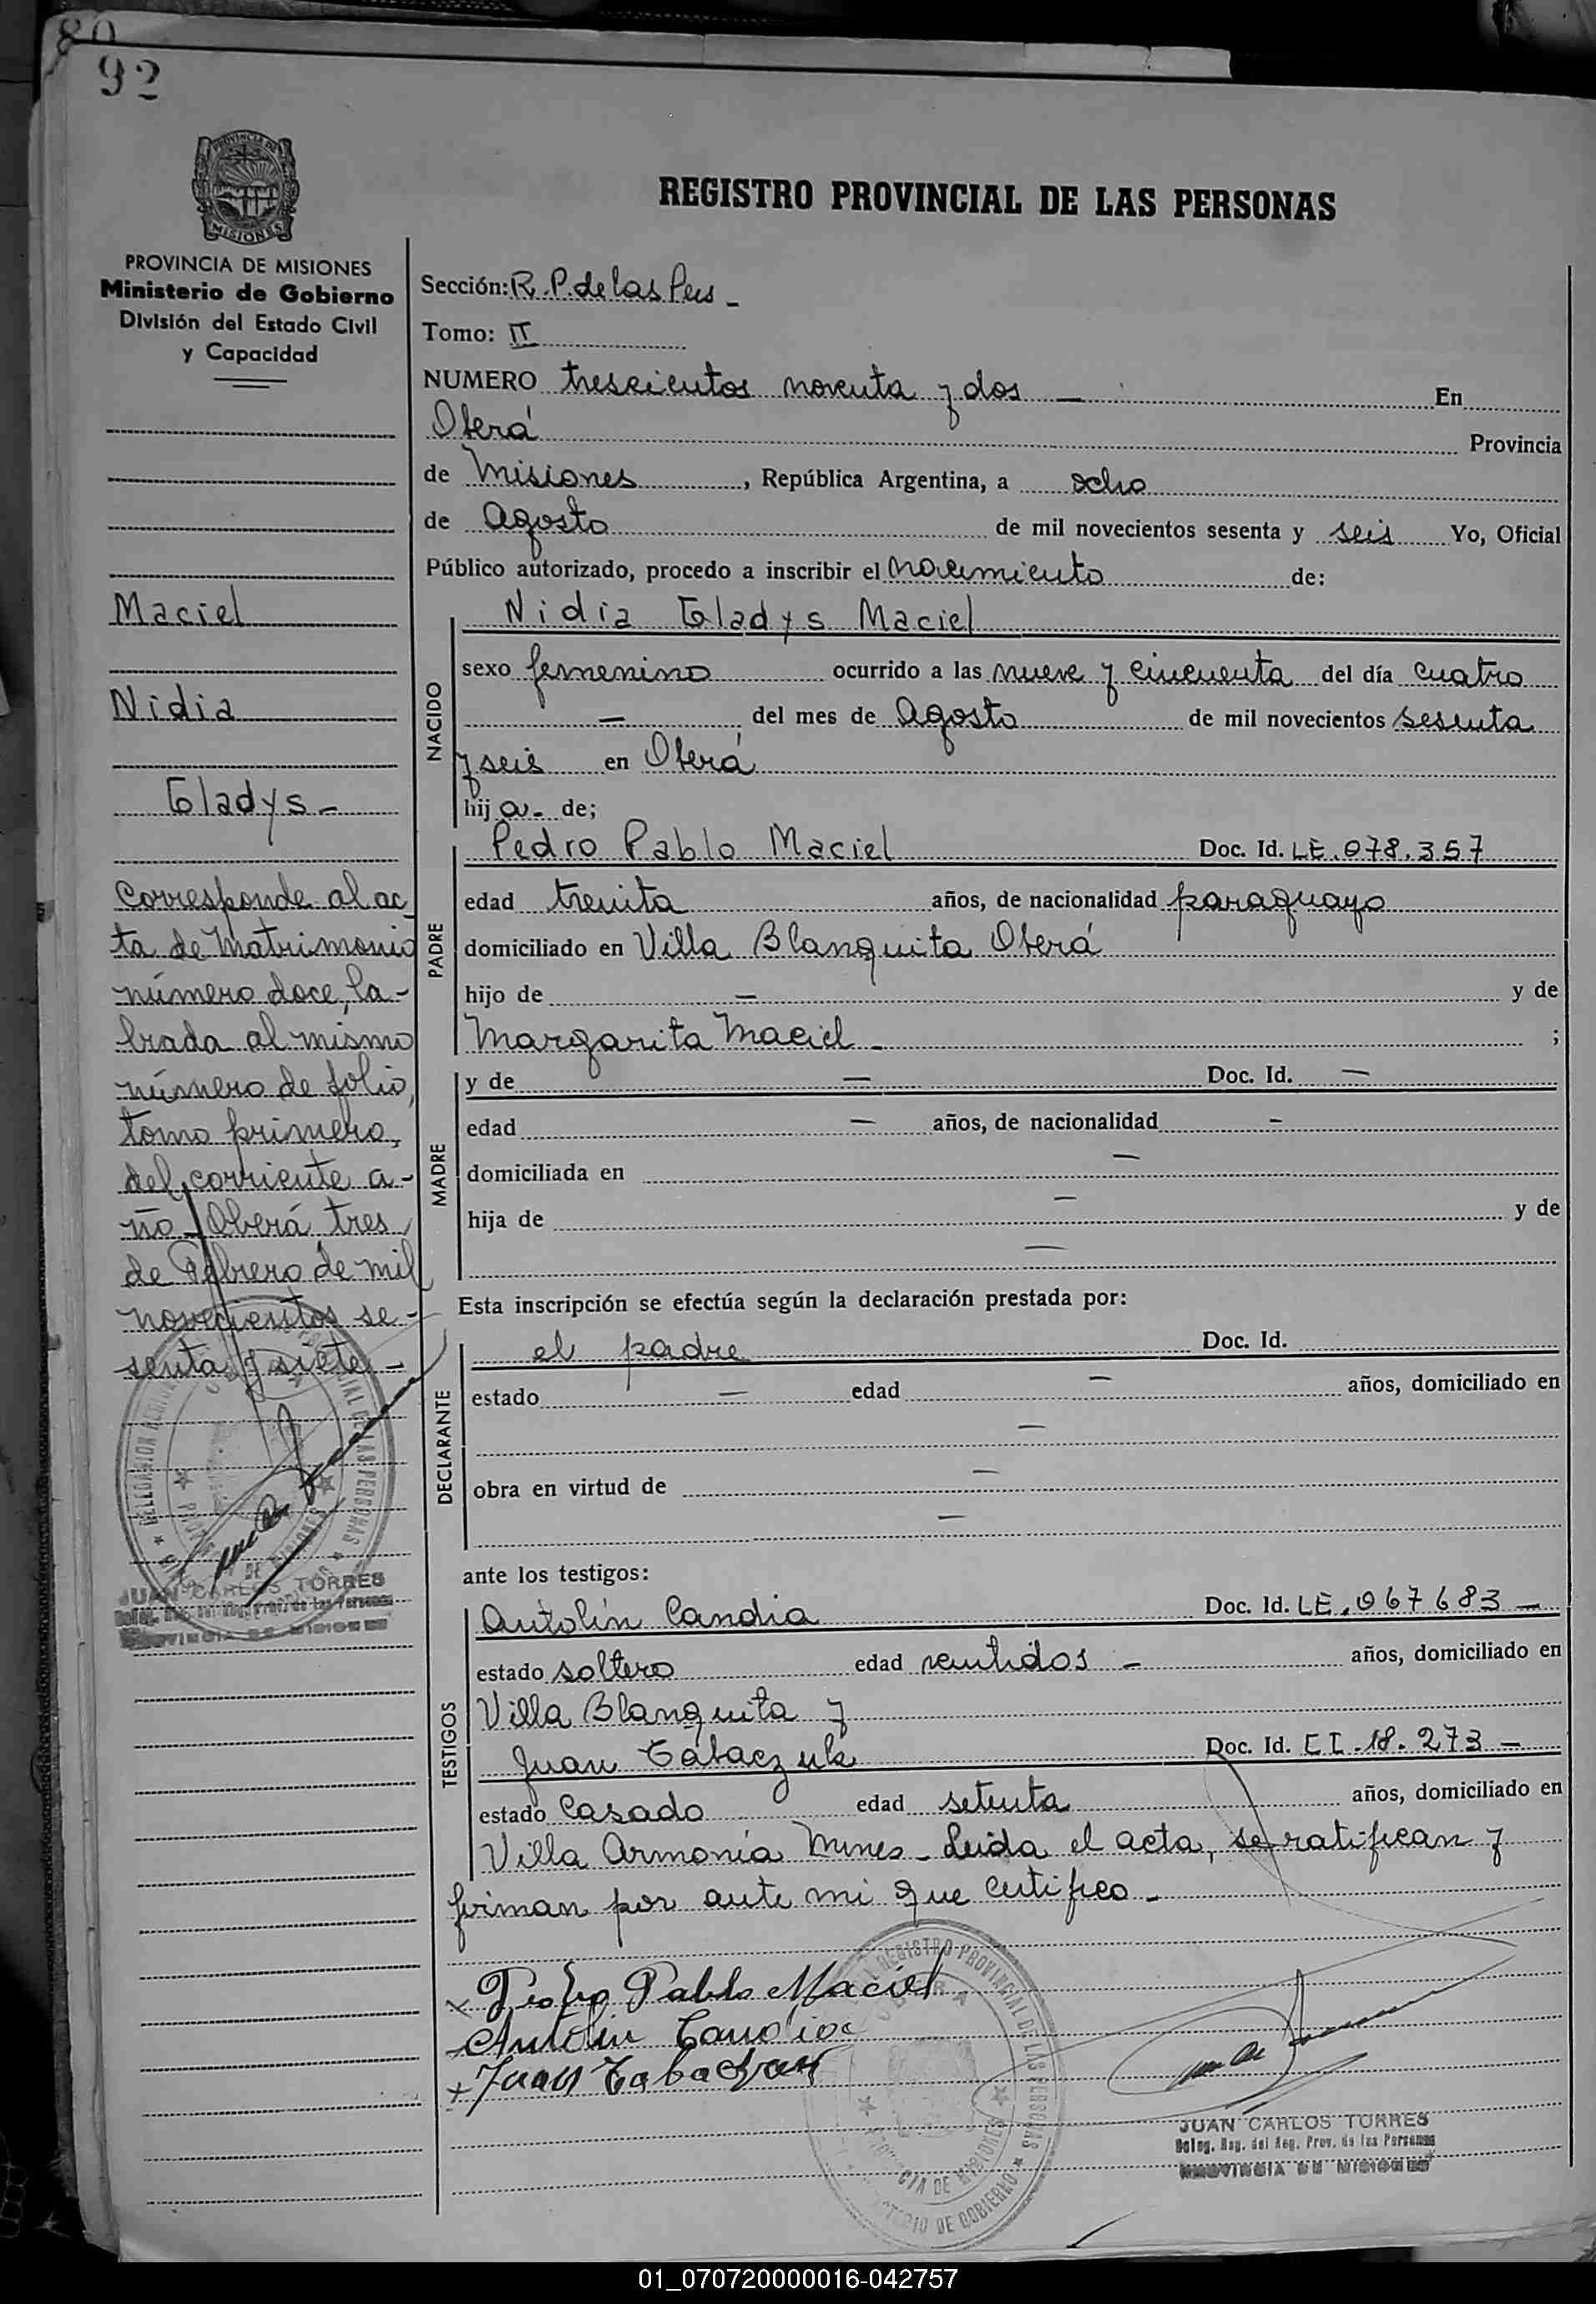 80
92
PROVINCIA DE
MISIONES
PROVINCIA DE MISIONES
Ministerio de Gobierno
División del Estado Civil
y Capacidad
REGISTRO PROVINCIAL DE LAS PERSONAS
Sección: R. P. de las Pers -
Tomo: II
NUMERO trescientos noventa y dos — En
Oberá Provincia
de Misiones, República Argentina, a ocho
de Agosto de mil novecientos sesenta y seis Yo, Oficial
Público autorizado, procedo a inscribir el nacimiento de:
NACIDO
Nidia Gladys Maciel
sexo femenino ocurrido a las nueve y cincuenta del día cuatro
— del mes de Agosto de mil novecientos sesenta
y seis en Oberá
hija. de;
PADRE
Pedro Pablo Maciel Doc. Id. LE. 078.357
edad treinta años, de nacionalidad paraguayo
domiciliado en Villa Blanquita Oberá
hijo de — y de
Margarita Maciel - ;
MADRE
y de — Doc. Id. —
edad — años, de nacionalidad -
domiciliada en —
hija de — y de
—
Esta inscripción se efectúa según la declaración prestada por:
DECLARANTE
el padre Doc. Id.
estado — edad — años, domiciliado en
—
obra en virtud de —
—
ante los testigos:
TESTIGOS
Antolín Candia Doc. Id. LE. 067683 —
estado soltero edad ventidos - años, domiciliado en
Villa Blanquita y
Juan Tabaczuk Doc. Id. CI. 18. 273 —
estado Casado edad setenta años, domiciliado en
Villa Armonía Mnes - Leida el acta, se ratifican y
firman por ante mi que certifico -
x Pedro Pablo Maciel
Antolin Candia
+ Juan
REGISTRO PROVINCIAL DE LAS PERSONAS
OBERA
PROVINCIA DE MISIONES
MINISTERIO DE GOBIERNO
JUAN CARLOS TORRES
Deleg. Reg. del Reg. Prov. de las Personas
PROVINCIA DE MISIONES
Maciel
Nidia
Gladys -
Corresponde al ac-
ta de Matrimonio
número doce, la-
brada al mismo
número de folio,
tomo primero,
del corriente a-
ño - Oberá, tres
de Febrero de mil
novecientos se-
senta y siete -
JUAN CARLOS TORRES
Deleg. Reg. del Reg. Prov. de las Personas
PROVINCIA DE MISIONES
01_070720000016-042757